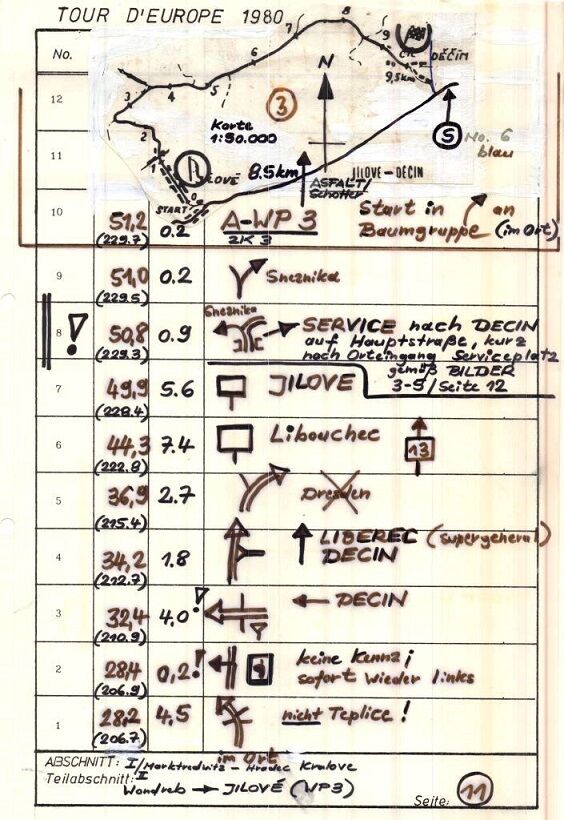 TOUR D'EUROPE 1980
No.
1 2 3 4 5 6 7 8 9
ČIL
DĚČÍN
9,5km
N
3
Karte
1:50.000
S
No. 6
blau
8.5km
JILOVÉ – DĚČIN
ASPHALT/
Schotter
START
12
11
10 51,2 (229.7) 0.2 A-WP 3
ZK 3
Start in an
Baumgruppe (im Ort)
9 51,0 (229.5) 0.2 Sneznika
8 ! 50,8 (229.3) 0.9 Sneznika
SERVICE nach DECIN
auf Hauptstraße, kurz
nach Orteingang Serviceplatz
gemäß BILDER
3-5/Seite 12
7 49,9 (228.4) 5.6 JILOVÉ
6 44,3 (222.8) 7.4 Libouchec 13
5 36,9 (215.4) 2.7 Dresden
4 34,2 (212.7) 1.8 LIBEREC (supergeneral)
DECIN
3 32,4 (210.9) 4.0 ! DECIN
2 28,4 (206.9) 0,2 ! keine Kennz;
sofort wieder links
1 28,2 (206.7) 4,5 nicht Teplice!
im Ort
ABSCHNITT: I/Marktredwitz – Hradec Kralove
Teilabschnitt: II
Wondreb → JILOVÉ (WP3)
Seite: 11